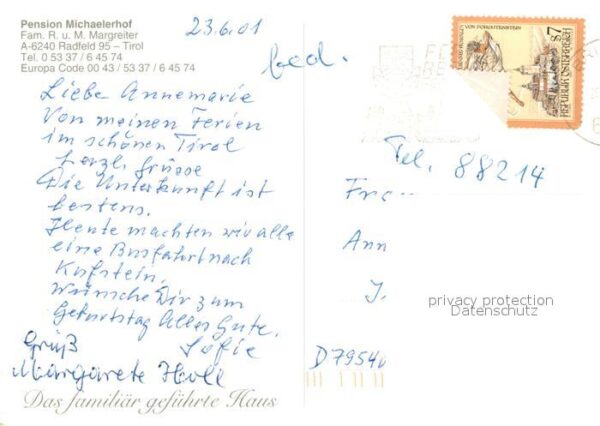 Pension Michaelerhof
Fam. R. u. M. Margreiter
A-6240 Radfeld 95 – Tirol
Tel. 0 53 37 / 6 45 74
Europa Code 00 43 / 53 37 / 6 45 74
23.6.01
Liebe Annemarie
Von meinen Ferien
im schönen Tirol
herzl. Grüsse
Die Unterkunft ist
bestens.
Heute machten wir alle
eine Busfahrt nach
Kufstein.
wünsche Dir zum
Geburtstag Alles Gute.
Sofie
Gruß
Margarete Holl
Das familiär geführte Haus
REPUBLIK ÖSTERREICH
S 7
Tel. 88214
Frau
Ann
J.
privacy protection
Datenschutz
D 79540